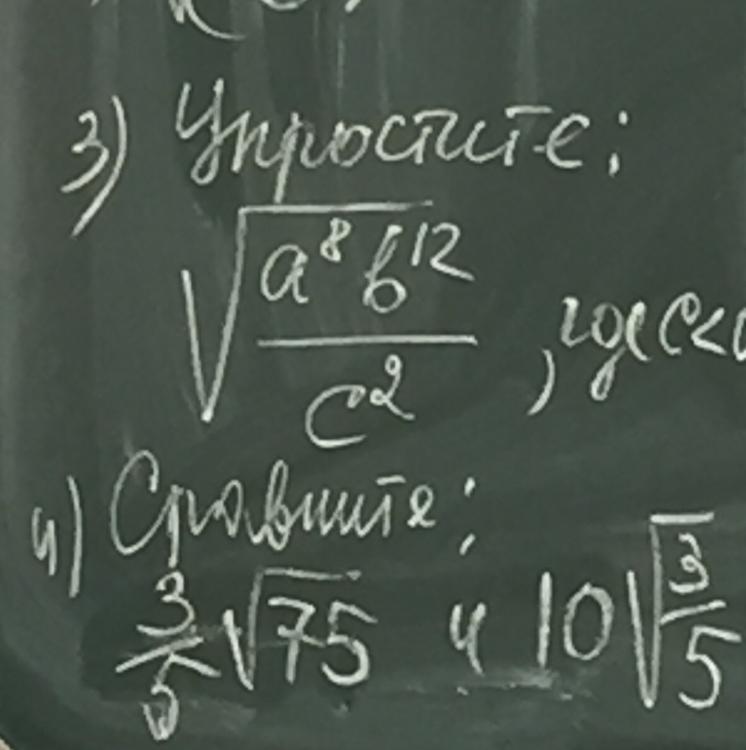 3) Упростите:
√(a⁸b¹²/c²), где c<0
4) Сравните:
3/5 √75 и 10√(3/5)